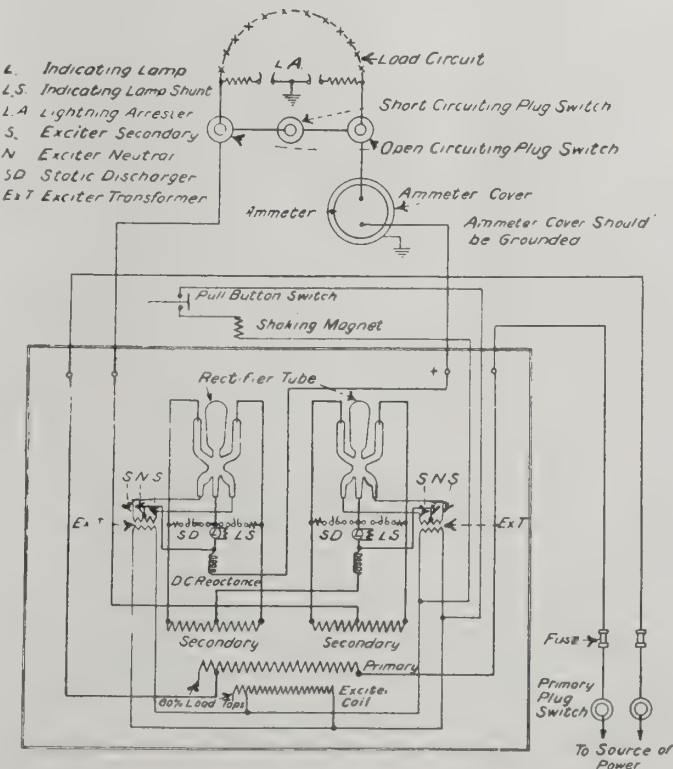 L. Indicating Lamp
L.S. Indicating Lamp Shunt
L.A Lightning Arrester
S. Exciter Secondary
N Exciter Neutral
SD Static Discharger
ExT Exciter Transformer
L.A.
Load Circuit
Short Circuiting Plug Switch
Open Circuiting Plug Switch
Ammeter Cover
Ammeter
Ammeter Cover Should
be Grounded
Pull Button Switch
Shaking Magnet
+
Rectifier Tube
S N S
S N S
Ex T
SD
L
LS
SD
L
LS
ExT
D.C Reactance
Secondary
Secondary
Primary
80% Load Taps
Exciter
Coil
Fuse
Primary
Plug
Switch
To Source of
Power